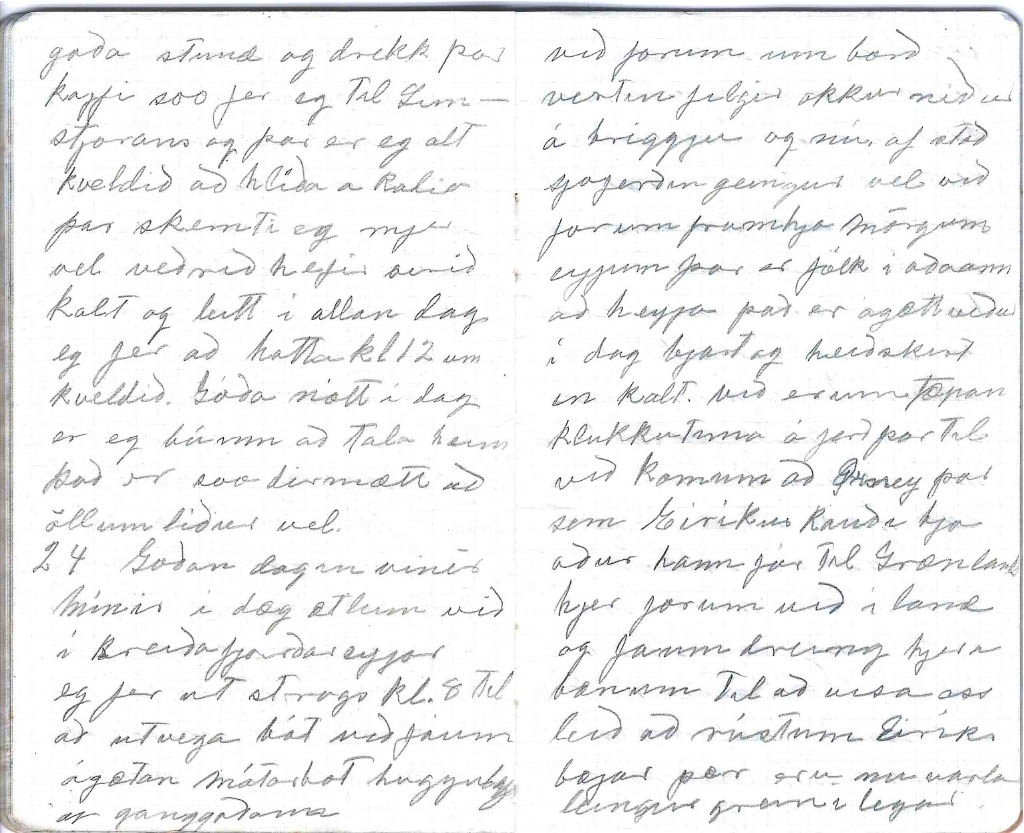 goða stund og drekk þar
kaffi soo fer eg til Sim-
stjorans og þar er eg alt
kveldið að hlíða a Ralio
þar skemti eg mjer
vel veðrið hefir verið
kalt og leitt i allan dag
eg fer að hatta kl 12 um
kveldið. Góða nótt i dag
er eg búinn að tala heim
það er soo dirmætt að
öllum liður vel.
24 Goðan dagin vinir
mínir i dag ætlum við
i Breiðafjarðareyjar
eg fer ut strags kl. 8 til
að utvega bát við fáum
ágætan mótorbot
ar ganggoðann
við forum um borð
vertin filgir okkur niður
á briggju og nú af stað
sjoferðin geingur vel við
forum framhja mörgum
eyjum þar er fólk i
að heyja það er agætt veður
i dag bjart og heiðskirt
en kalt. við erum tæpan
klukkutima á ferð þar til
við komum að Öxney þar
sem Eirikur Rauði bjo
aður hann fór til Grænlands
hjer forum við i land
og faum dreing hjer i
bænum til að visa oss
leið að rústum Eiriks
bæjar þær eru nu varla
leingur greinilegar.